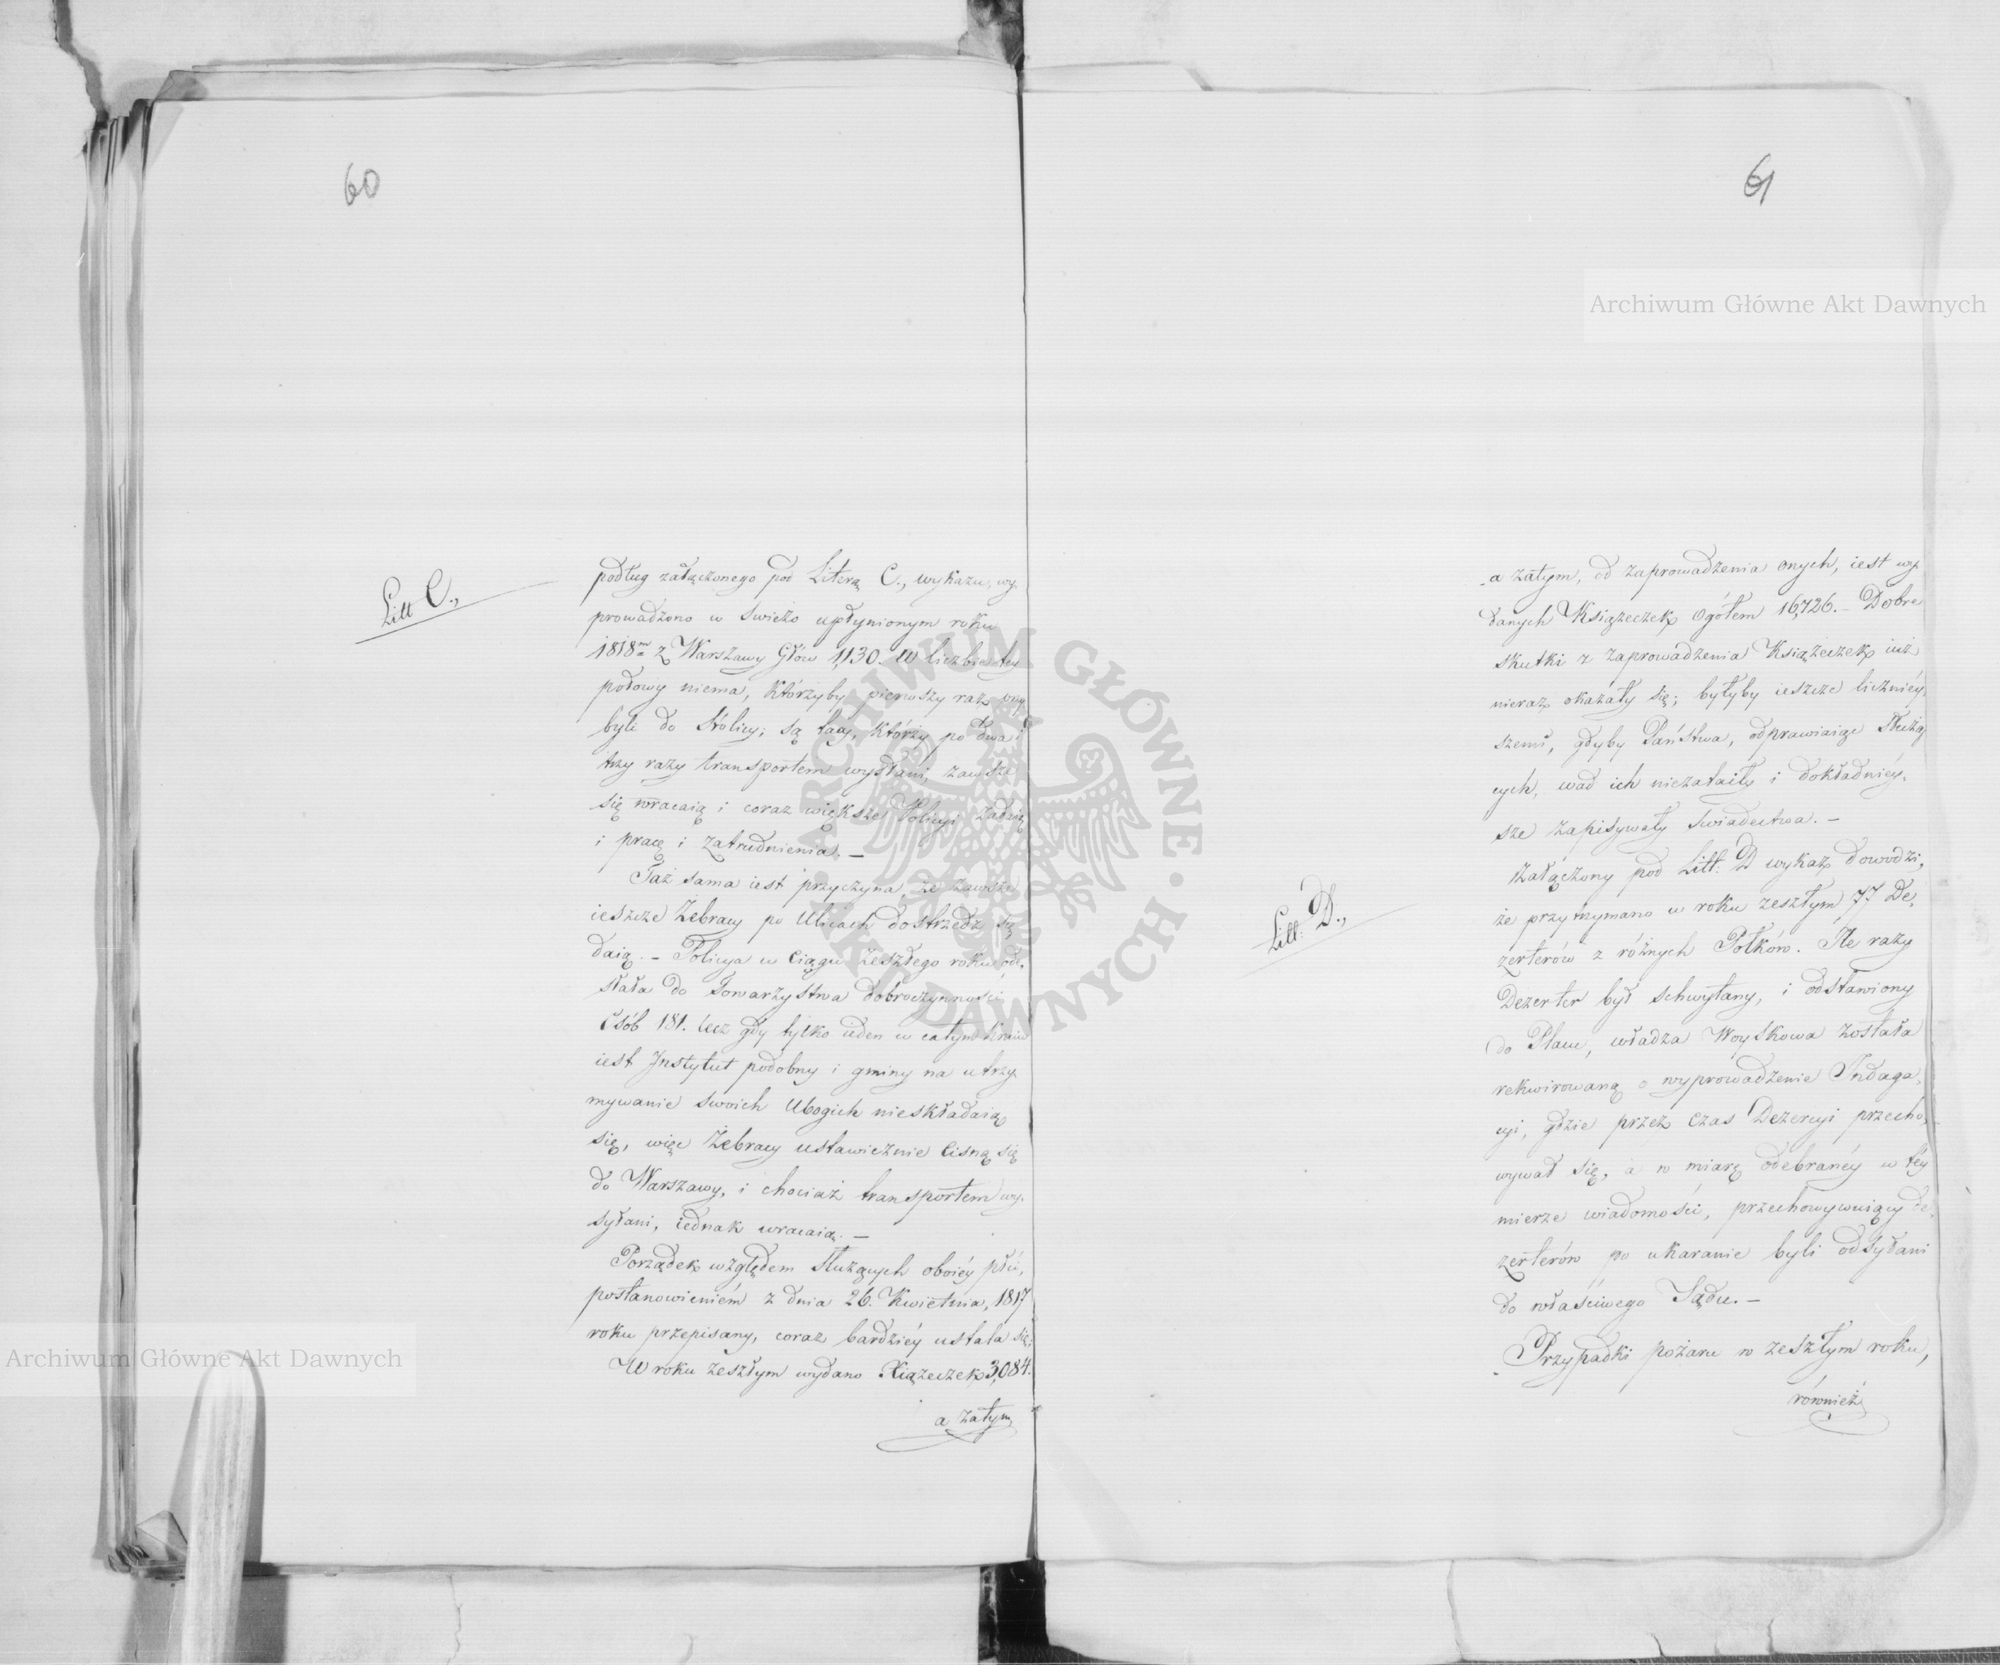 60
Litt C.,
podług załączonego pod Literą C., wykazu, wy
prowadzono w swieżo upłynionym roku
1818m z Warszawy Głów 1,130. W liczbie tey
połowy niema, którzyby pierwszy raz przy
byli do Stolicy; są tacy, którzy po dwa i
trzy razy transportem wysłani, zawsze
się wracaią i coraz większe Policyi zadaią
i pracę i zatrudnienia. —
Taż sama iest przyczyna, że zawsze
ieszcze Żebracy po Ulicach dostrzedz się
daią. – Policya w ciągu zeszłego roku ode,
słała do Towarzystwa dobroczynności
Osób 181. lecz gdy tylko ieden w całym kraiu
iest Instytut podobny i gminy na utrzy
mywanie swoich Ubogich nieskładaią
się, więc Żebracy ustawicznie cisną się
do Warszawy, i chociaż transportem wy,
syłani, iednak wracaią. —
Porządek względem Służących oboiéy płci,
postanowieniém z dnia 26. Kwietnia, 1817
roku przepisany, coraz bardziéy ustala się;
W roku zeszłym wydano Xiążeczek 3,084.
a zatym
61
Litt: D.,
a zatym, od zaprowadzenia onych, iest wy
danych Książeczek ogółem 16,726. – Dobre
skutki z zaprowadzenia Książeczek iuż
nieraz okazały się; byłyby ieszcze liczniéy,
szemi, gdyby Państwa, odprawiaiąc Służą
cych, wad ich niezataiły i dokładniéy,
sze zapisywały Swiadectwa. —
Załączony pod Litt: D wykaz dowodzi,
że przytrzymano w roku zeszłym 77 De,
zerterów z różnych Połków. Ile razy
Dezerter był schwytany, i odstawiony
do Placu, władza Woyskowa została
rekwirowaną o wyprowadzenie Indaga,
cyi, gdzie przez czas Dezercyi przecho,
wywał się, a w miarę odebranéy w téy
mierze wiadomości, przechowywuiący de,
zerterów po ukaranie byli odsyłani
do właściwego Sądu. —
Przypadki pożaru w zeszłym roku,
również
Archiwum Główne Akt Dawnych
Archiwum Główne Akt Dawnych
ARCHIWUM GŁÓWNE AKT DAWNYCH